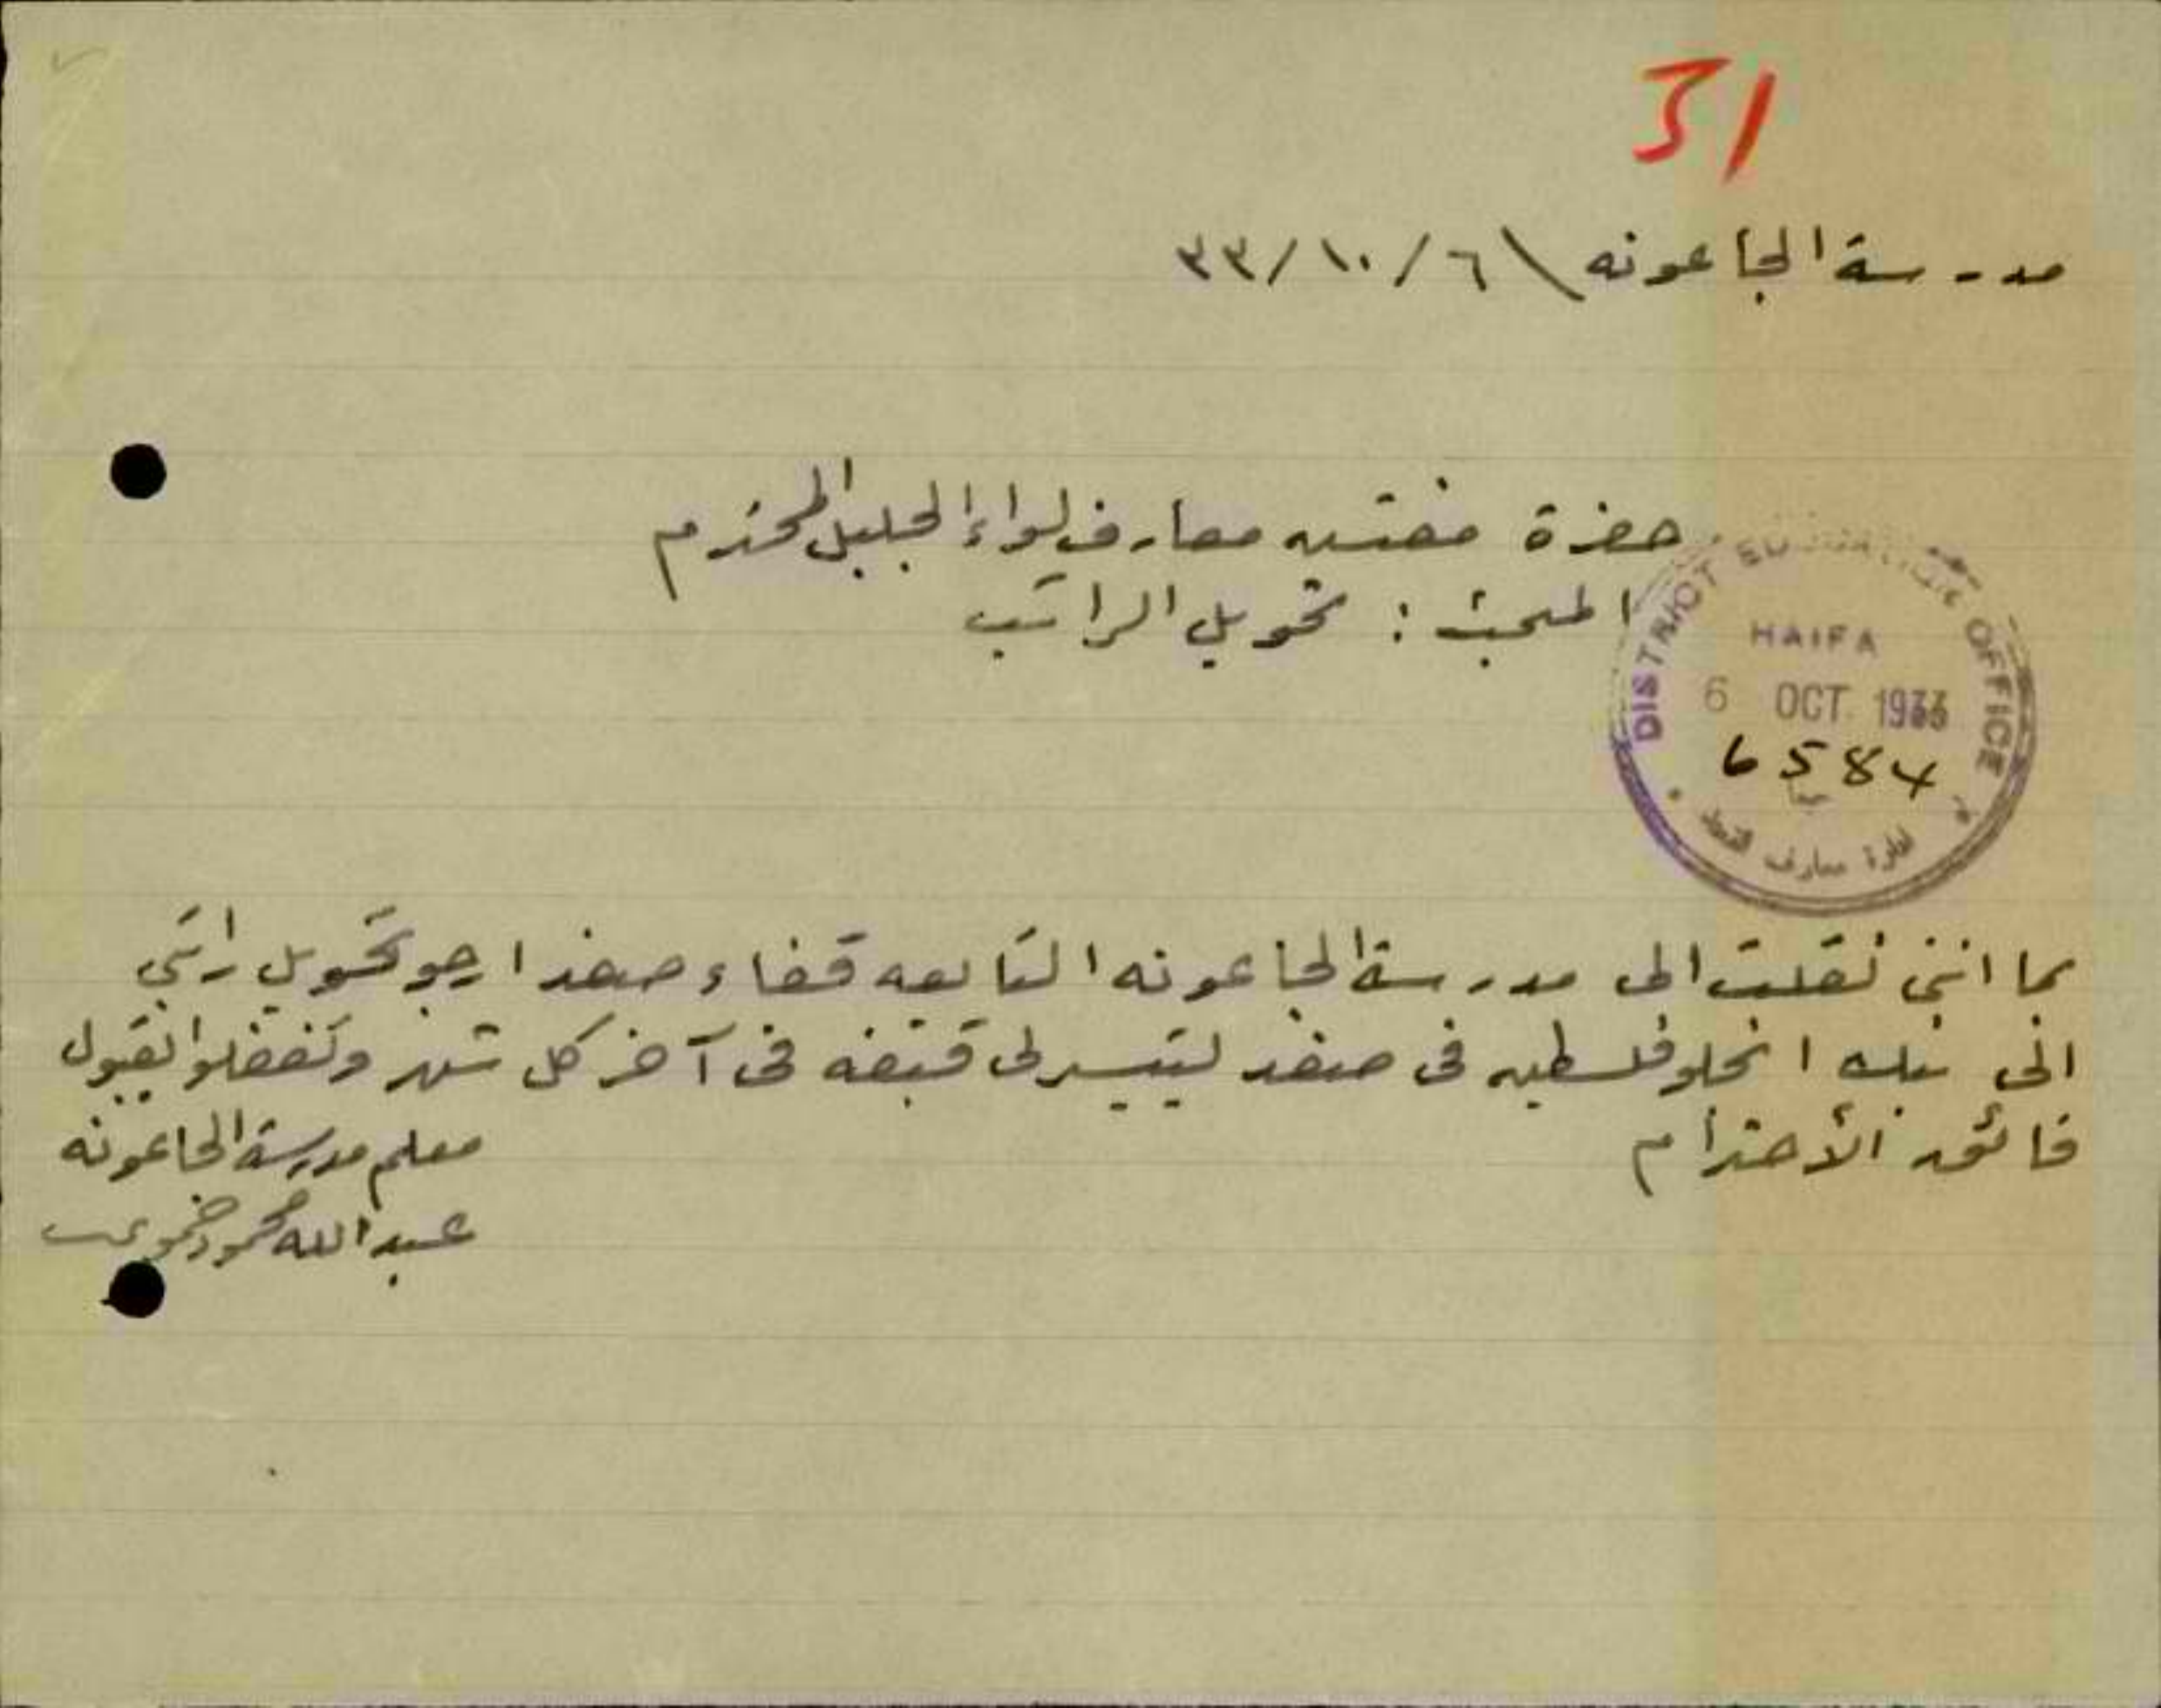 31
مدرسة الجاعونه \ ٦/١٠/٣٣
حضرة مفتش معارف لواء الجليل المحترم
المبحث : تحويل الراتب
DISTRICT EDUCATION OFFICE
HAIFA
6 OCT 1933
6584
ادارة معارف
بما انني نقلت الى مدرسة الجاعونه التابعه قضاء صفد ارجو تحويل راتبي
الى بنك انجلو فلسطين في صفد ليتيسر لي قبضه في آخر كل شهر وتفضلوا بقبول
فائق الأحترام
معلم مدرسة الجاعونه
عبدالله محمود